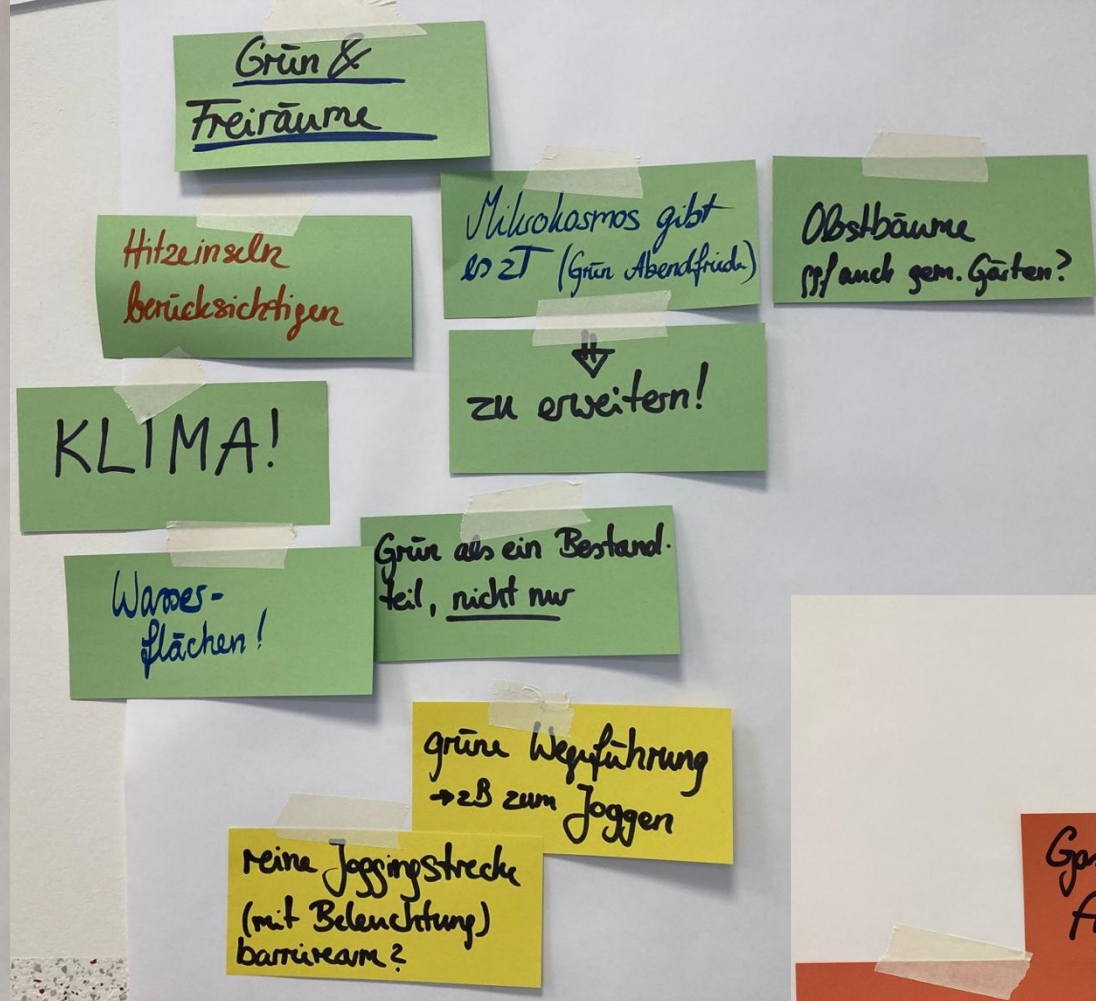 Grün &
Freiräume
Hitzeinseln
berücksichtigen
Mikrokosmos gibt
es zT (Grün Abendfriede)
Obstbäume
ggf auch gem. Gärten?
KLIMA!
zu erweitern!
Wasser-
flächen!
Grün als ein Bestand-
teil, nicht nur
grüne Wegeführung
→ zB zum Joggen
reine Joggingstrecke
(mit Beleuchtung)
barrierearm?